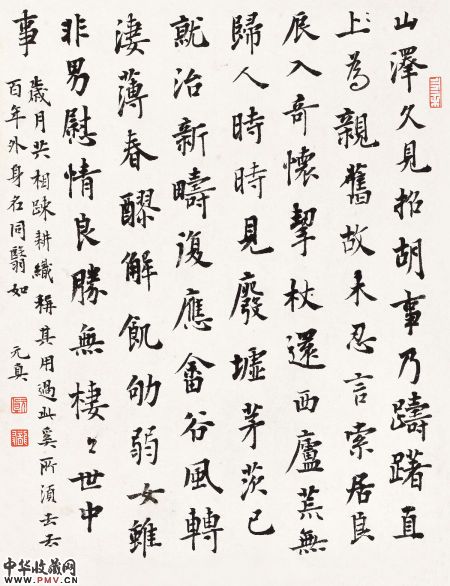 山澤久見招胡事乃躊躇直
上為親舊故未忍言索居良
辰入奇懷挈杖還西廬荒無
歸人時時見廢墟茅茨已
就治新疇復應畬谷風轉
淒薄春醪解飢劬弱女雖
非男慰情良勝無棲〻世中
事
歲月共相踈耕織稱其用過此奚所須去去
百年外身名同翳如
元真
中华收藏网
www.PMV.CN